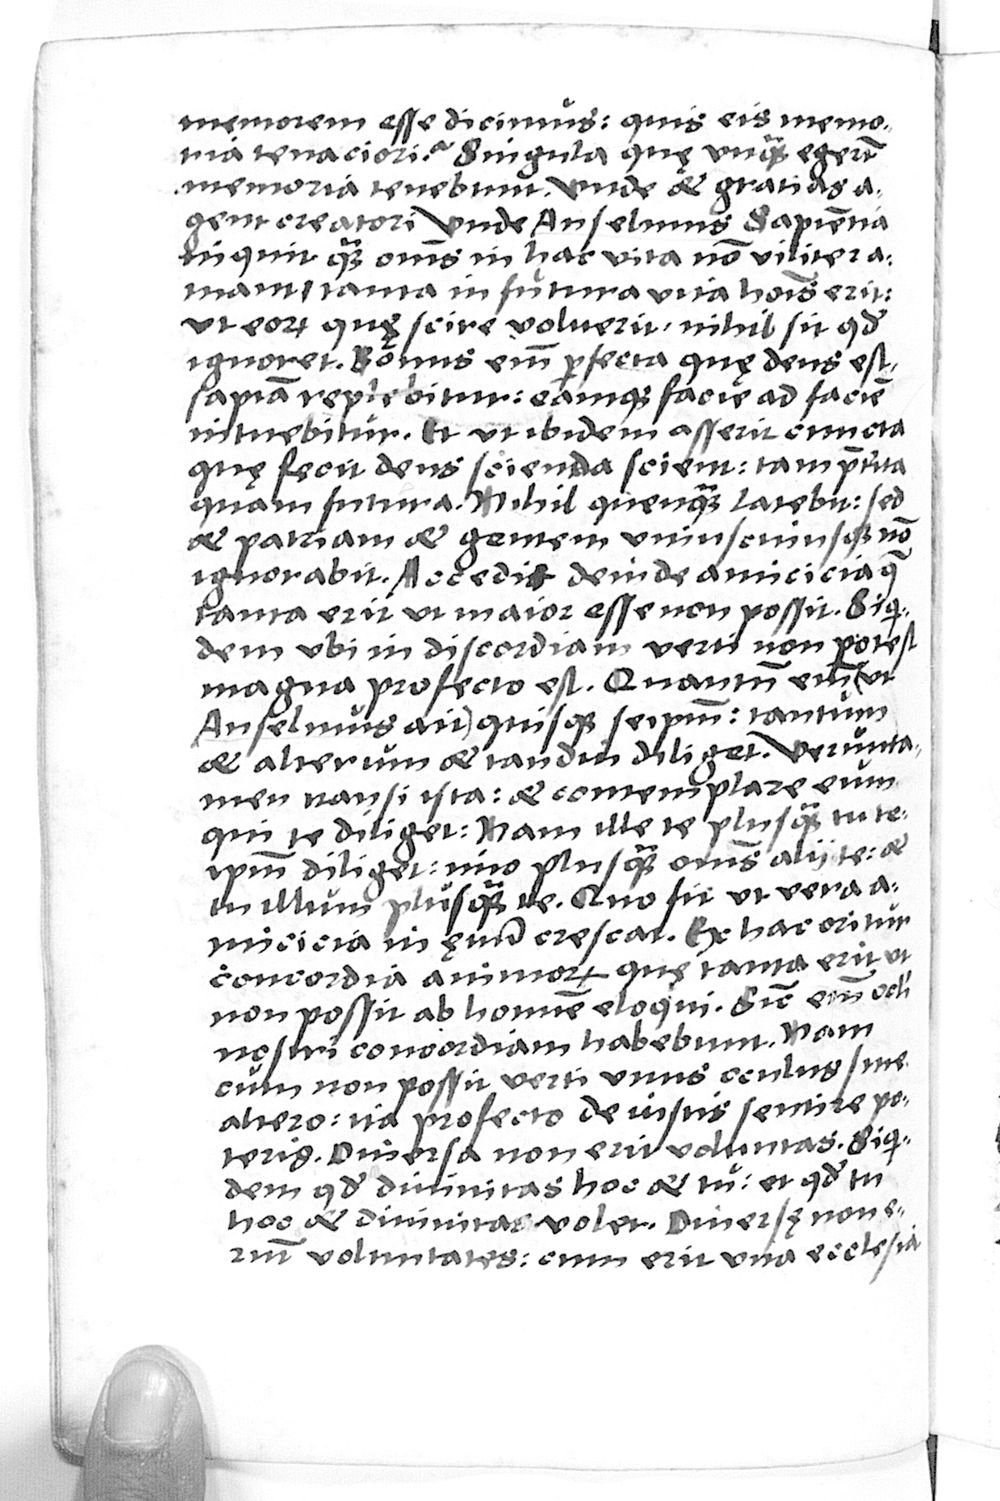 memorem esse dicimus: quis eis memo-
ria tenaciori? Singula quę vnq̃ȝ egerũt
memoria tenebunt. Vnde & gratias a-
gent creatori Vnde Anselmus Sapiẽtia
inquit q̃ȝ om̃s in hac vita nõ viliter a-
mant, tanta in futura vita hoĩs erit:
vt eoꝝ quę scire voluerit, nihil sit qđ
ignoret. Bonus em̃ ꝑfecta quę deus est,
sapiã replebitur: eamqȝ faciẽ ad faciẽ
intuebitur. Et vt ibidem asserit cuncta
quę fecit deus scienda scient: tam p̃tita
quam futura. Nihil quenq̃ȝ latebit: sed
& patriam & gentem vniuscuiusqȝ nõ
ignorabit. Accedit deinde amicicia q̃
tanta erit vt maior esse non possit. Siq̃-
dem vbi in discordiam verti non potest
magna profecto est. Quantũ em̃ (vt
Anselmus ait) quisqȝ seipm̃: tantum
& alterum & tandiu diliget. Verunta-
men transi ista: & contemplare eum
qui te diliget: Nam ille te plusq̃ȝ tu te-
ipm̃ diliget: imo plusq̃ȝ om̃s alij te: &
tu illum plusq̃ȝ te. Quo fit vt vera a-
micicia in ęuũ crescat. Ex hac oritur
concordia animoꝝ quę tanta erit vt
non possit ab homĩe eloqui. Sic em̃ ocli
nostri concordiam habebunt. Nam
cum non possit verti vnus oculus sine
altero: ita profecto de iustis sentire po-
teris. Diuersa non erit voluntas. Siq̃-
dem qđ diuinitas hoc & tu: et qđ tu
hoc & diuinitas volet. Diuersę non e-
runt voluntates: cum erit vna ecclesia